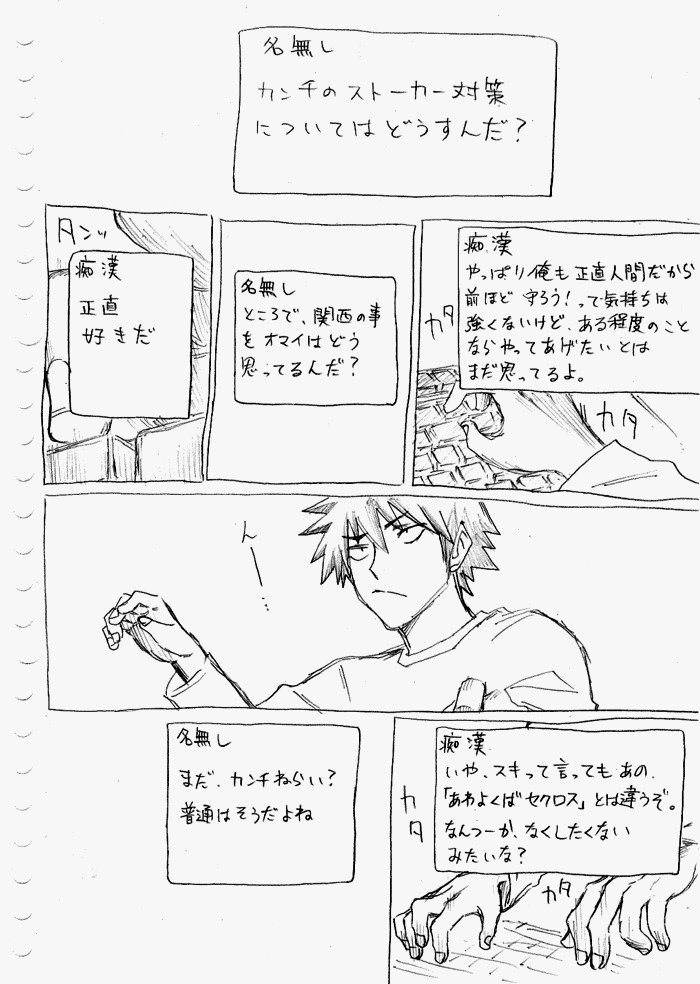 名無し
カンチのストーカー対策
についてはどうすんだ?
痴漢
やっぱり俺も正直人間だから
前ほど守ろう!って気持ちは
強くないけど、ある程度のこと
ならやってあげたいとは
まだ思ってるよ。
カタ
カタ
名無し
ところで、関西の事
をオマイはどう
思ってるんだ?
タンッ
痴漢
正直
好きだ
んー…
痴漢
いや、スキって言ってもあの
「あわよくばセクロス」とは違うぞ。
なんつーか、なくしたくない
みたいな?
カタ
カタ
名無し
まだ、カンチねらい?
普通はそうだよね